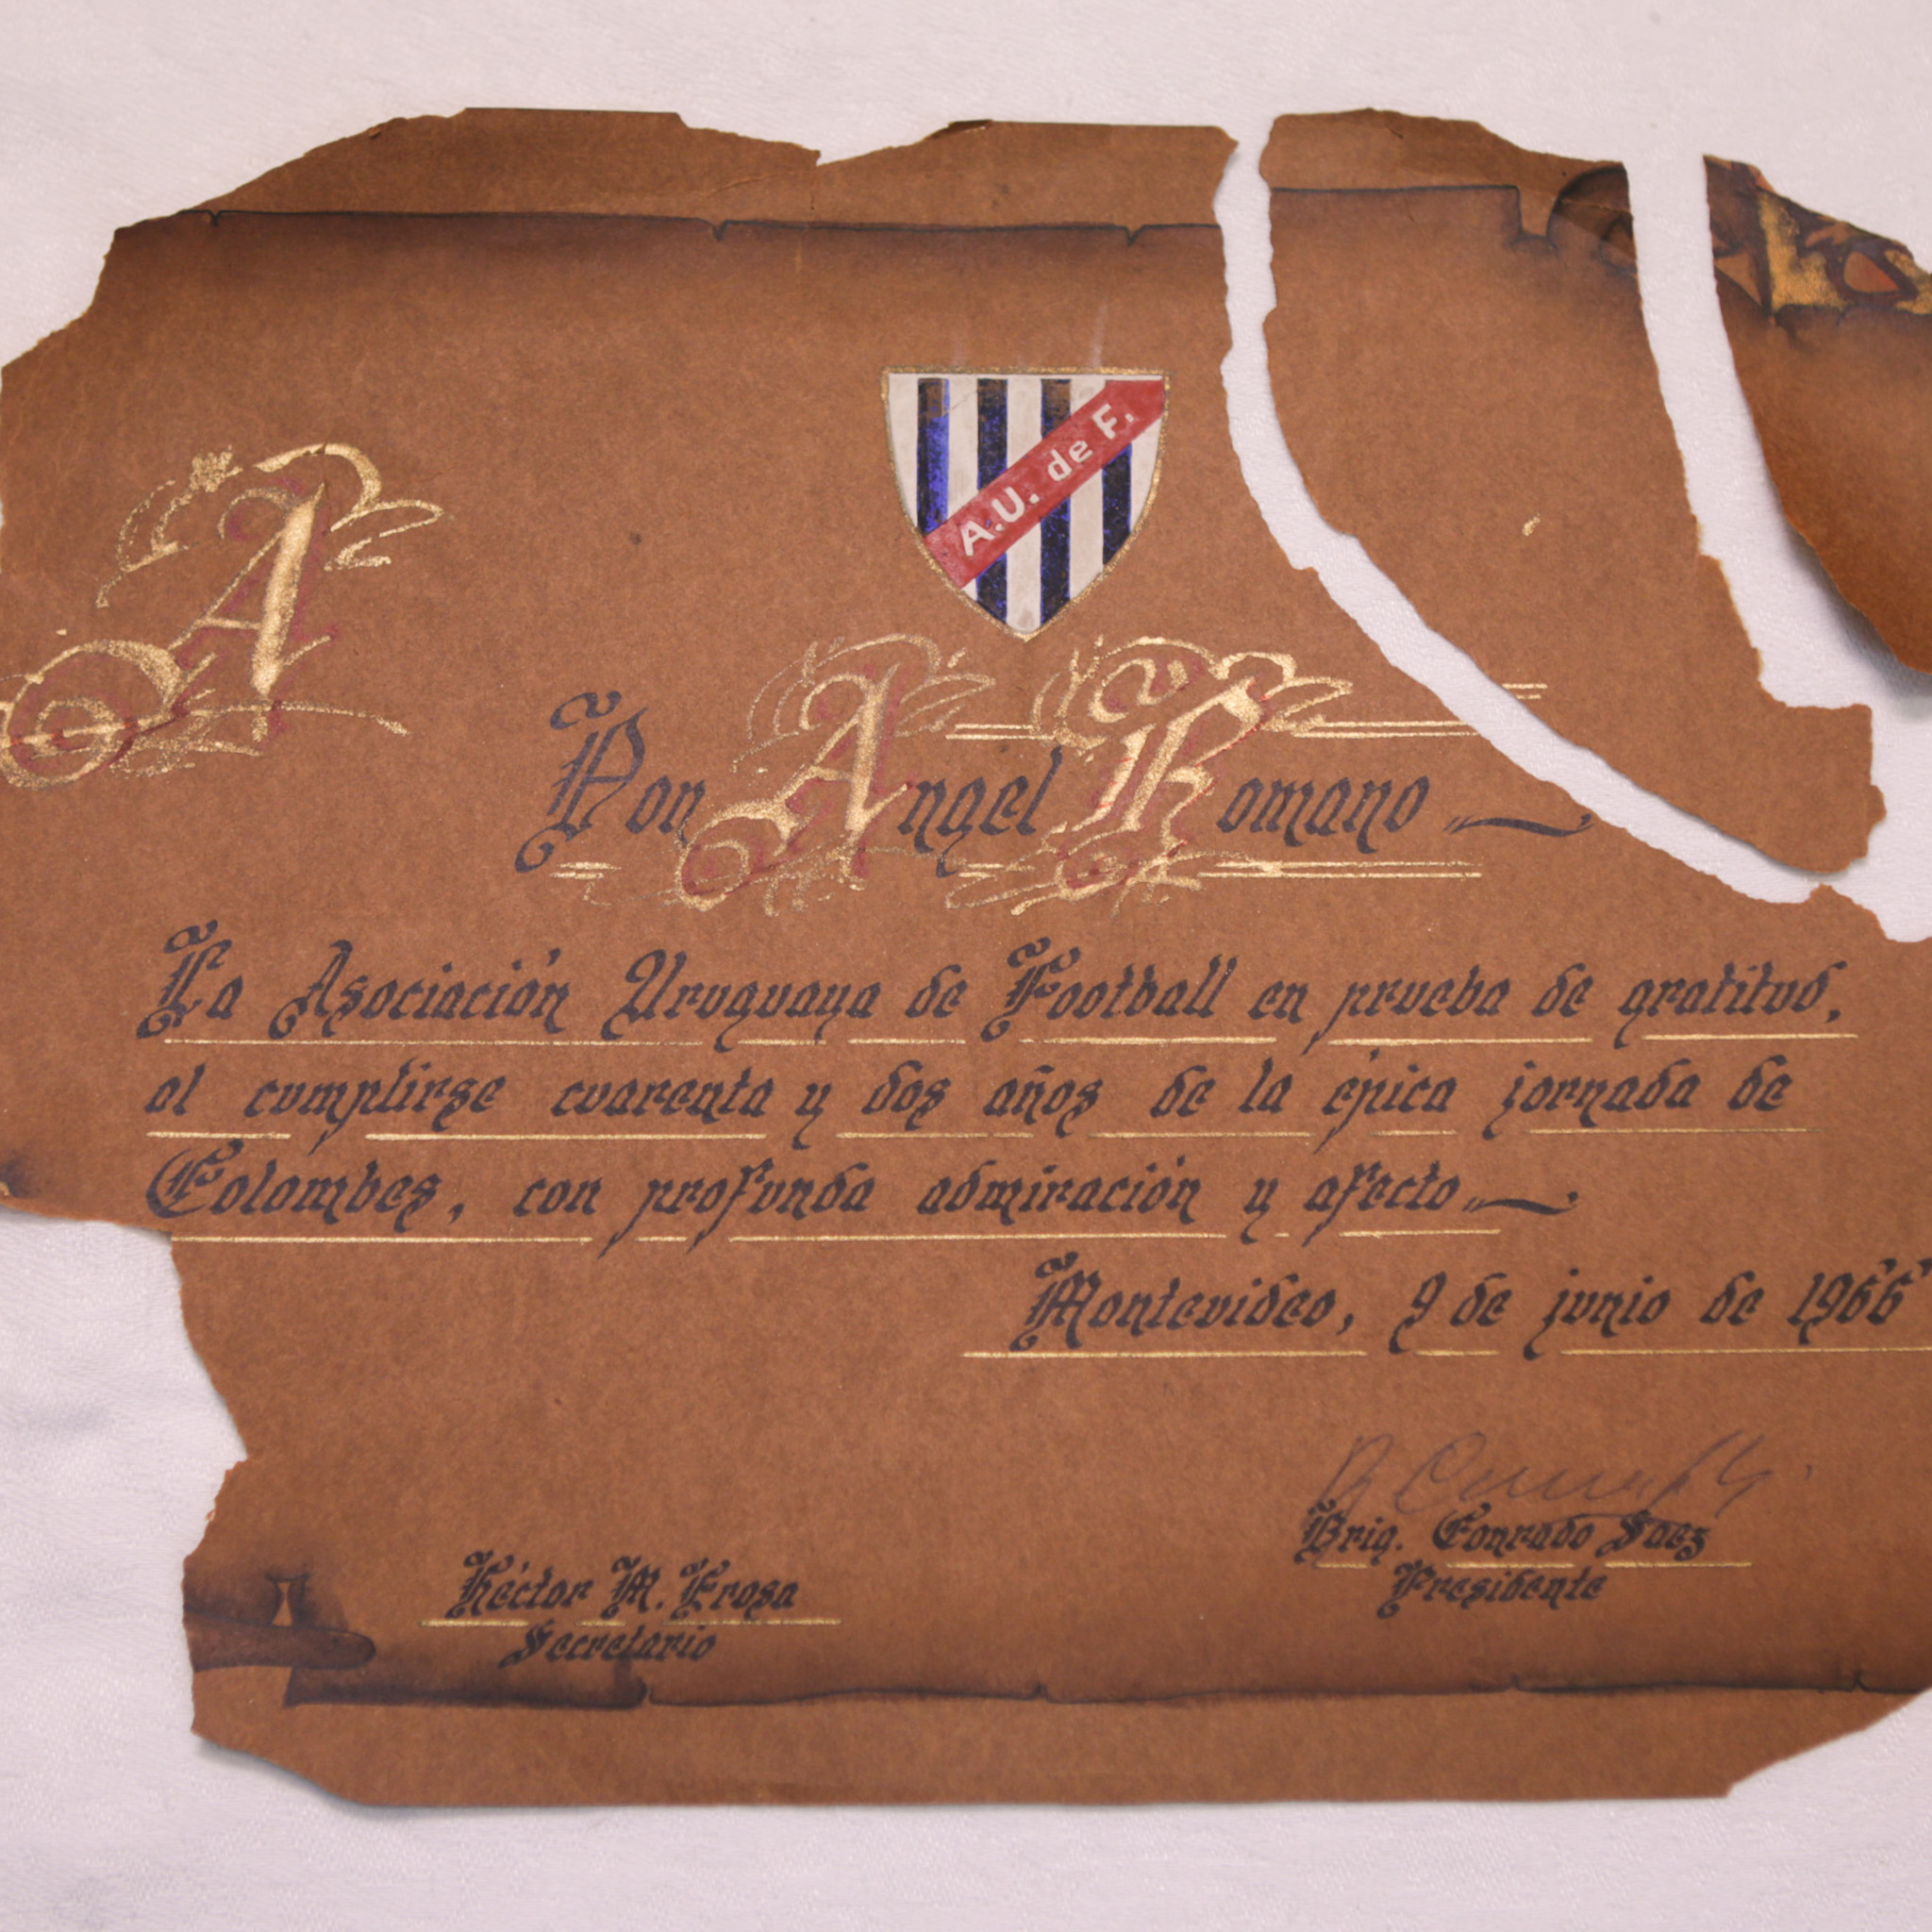 A.U. de F.
A
Don Angel Romano
La Asociación Uruguaya de Football en prueba de gratitud,
al cumplirse cuarenta y dos años de la épica jornada de
Colombes, con profunda admiración y afecto
Montevideo, 9 de junio de 1966
Brig. Conrado Saez
Presidente
Héctor M. Erosa
Secretario